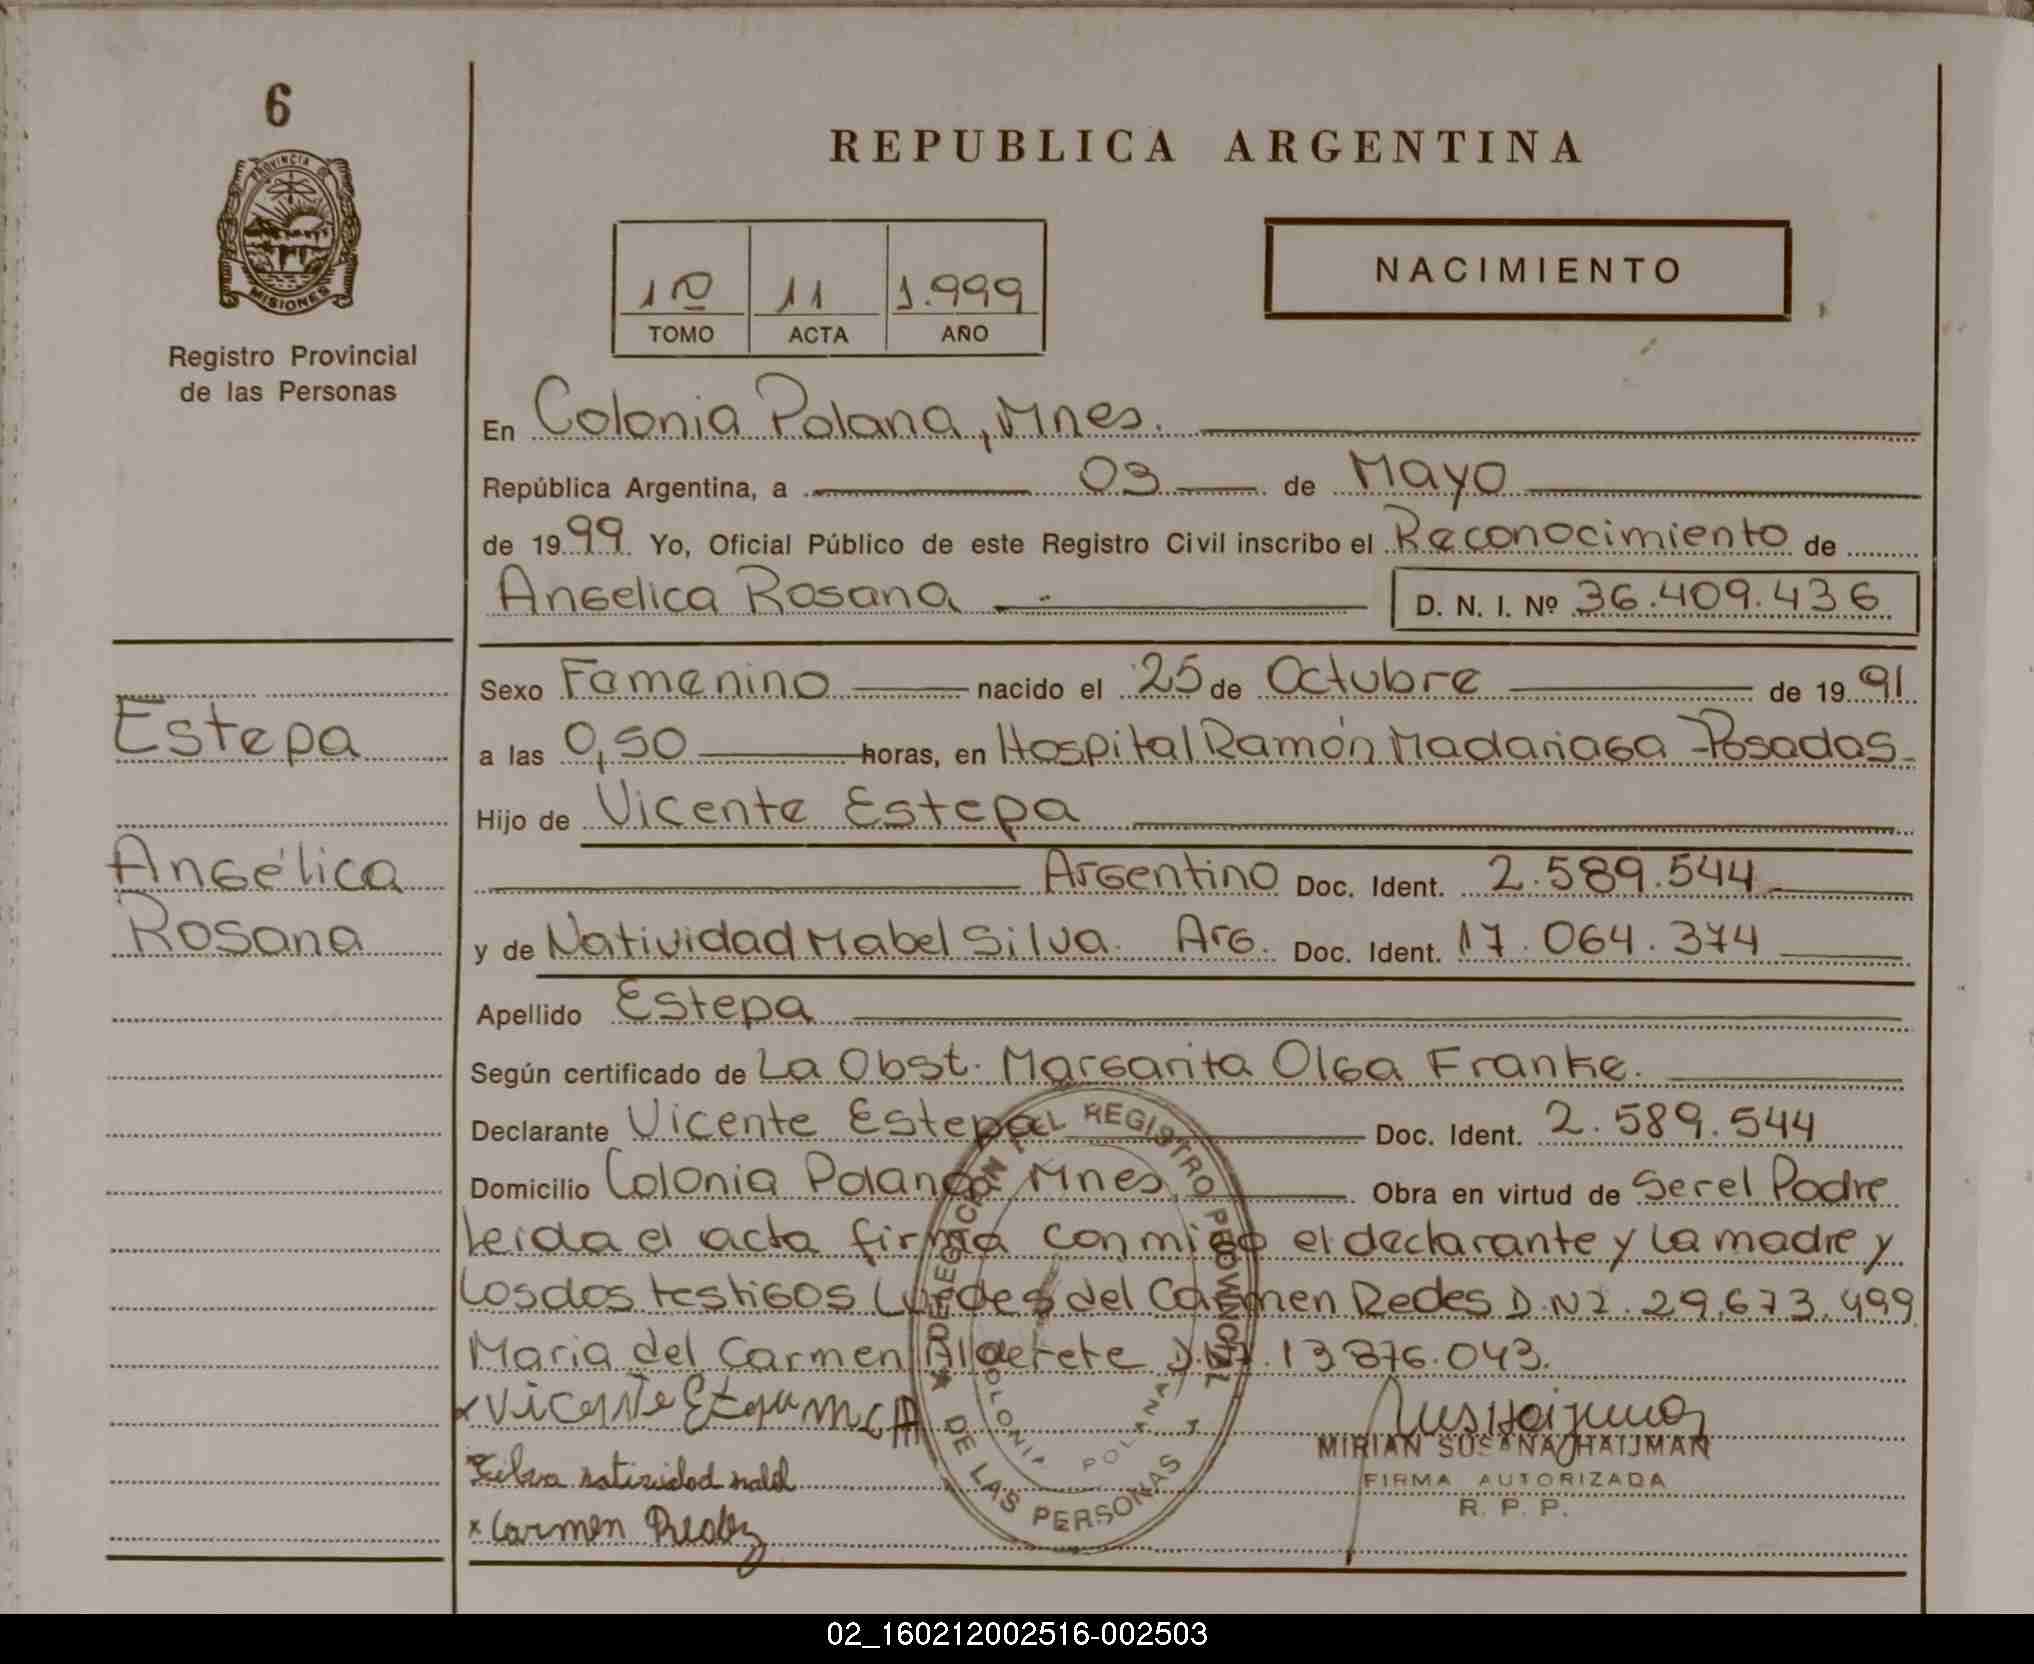 6
PROVINCIA DE
MISIONES
Registro Provincial
de las Personas
Estepa
Angélica
Rosana
REPUBLICA ARGENTINA
1º 11 1.999
TOMO ACTA AÑO
NACIMIENTO
En Colonia Polana, Mnes.
República Argentina, a 03 de Mayo
de 1999 Yo, Oficial Público de este Registro Civil inscribo el Reconocimiento de
Angelica Rosana D. N. I. Nº 36.409.436
Sexo Femenino nacido el 25 de Octubre de 1991
a las 0,50 horas, en Hospital Ramón Madariaga - Posadas-
Hijo de Vicente Estepa
Argentino Doc. Ident. 2.589.544
y de Natividad Mabel Silva. Arg. Doc. Ident. 17.064.374
Apellido Estepa
Según certificado de La Obst. Margarita Olga Franke.
Declarante Vicente Estepa Doc. Ident. 2.589.544
Domicilio Colonia Polana Mnes. Obra en virtud de Ser el Padre
Leida el acta firma conmigo el declarante y la madre y
los dos testigos del Carmen Redes D.N.I. 29.673.499
Maria del Carmen Alderete D.N.I. 13.876.043.
x Vicente
Silva natividad mabel
x Carmen
DELEGACION DEL REGISTRO PROVINCIAL
DE LAS PERSONAS
COLONIA POLANA
MIRIAN SUSANA HAIJMAN
FIRMA AUTORIZADA
R. P. P.
02_160212002516-002503